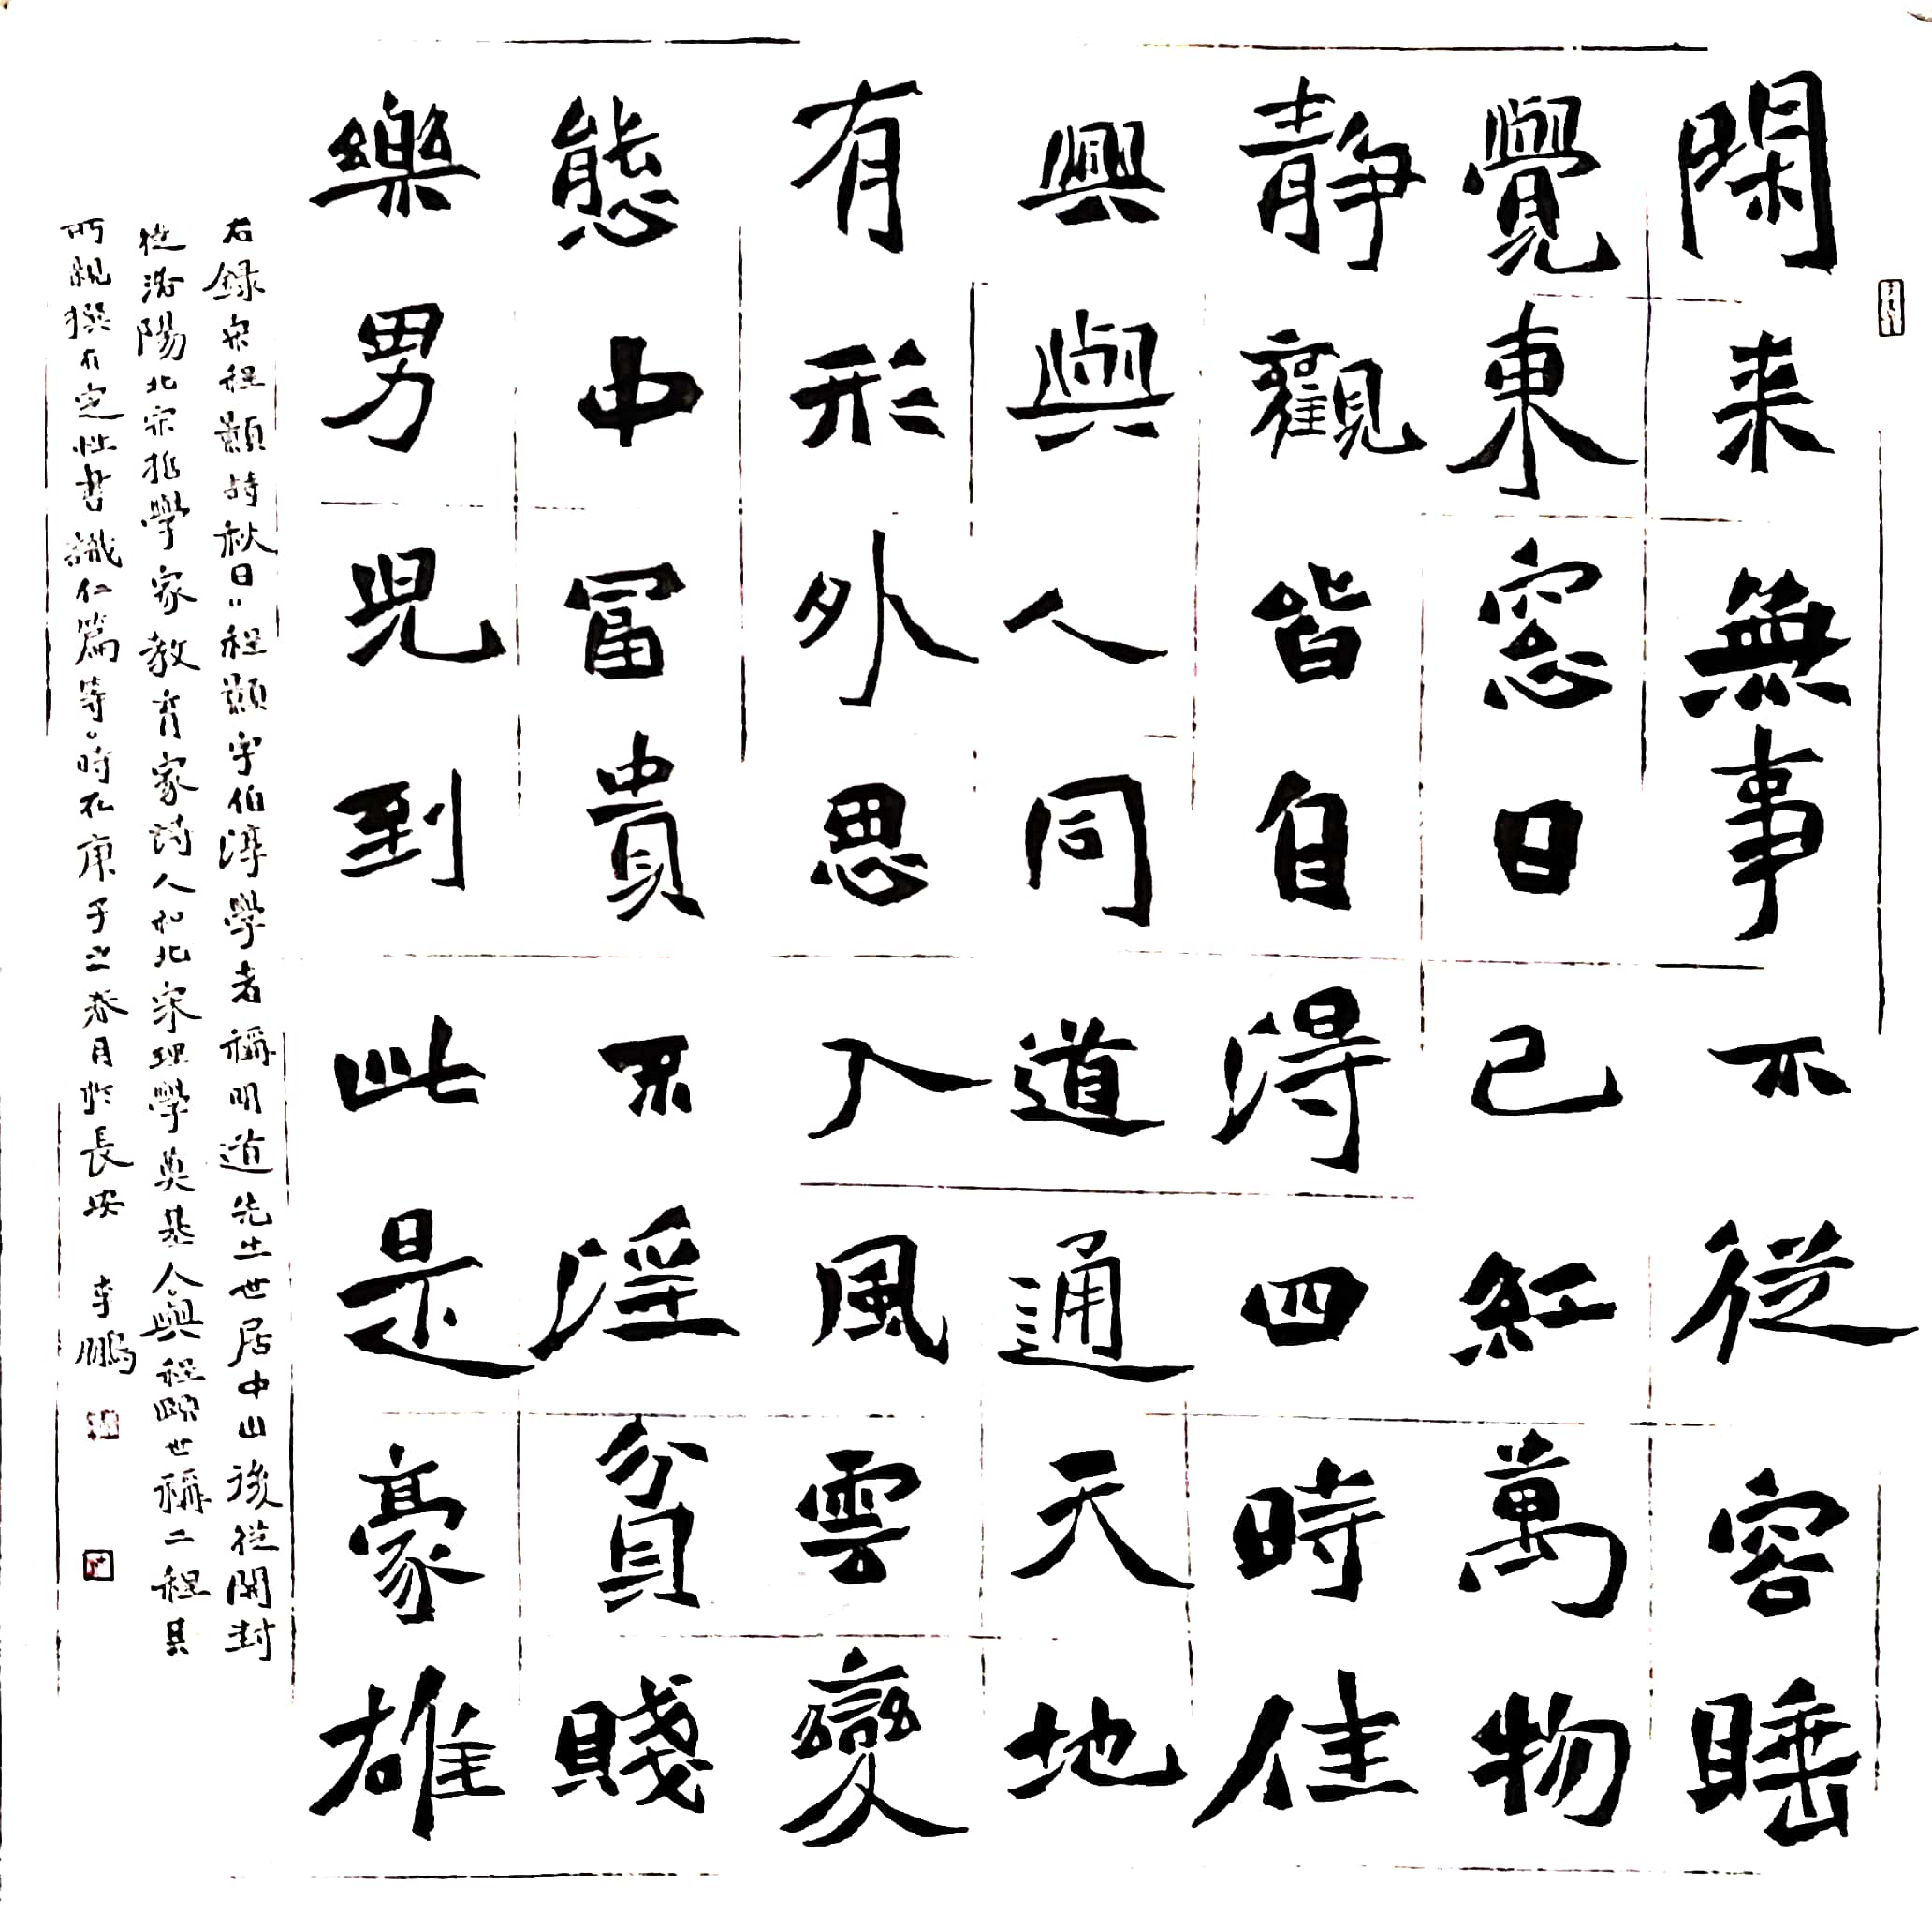 閑来無事不從容睡
覺東窓日已紅萬物
静觀皆自得四時佳
興與人同道通天地
有形外思入風雲變
態中冨貴不淫貧賤
樂男兒到此是豪雄
右録宋程顥詩秋日程顥字伯淳學者稱明道先生世居中山後從開封
徙洛陽北宋哲學家教育家詩人和北宋理學奠基人與程頤世稱二程其
所親撰有定性書識仁篇等。時在庚子之春月於長安 李鵬